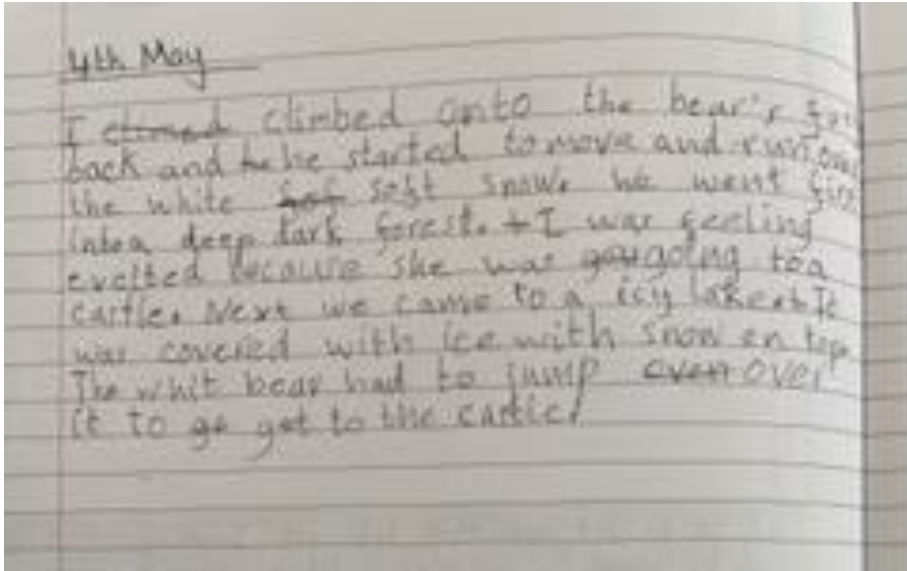 4th May
I climed climbed onto the bear's
back and he started to move and run over
the white sof soft snow. We went first
into a deep dark forest. I was feeling
excited because she was going to a
castle. Next we came to a icy lake. It
was covered with ice with snow on top.
The whit bear had to jump even over
it to go get to the castle.